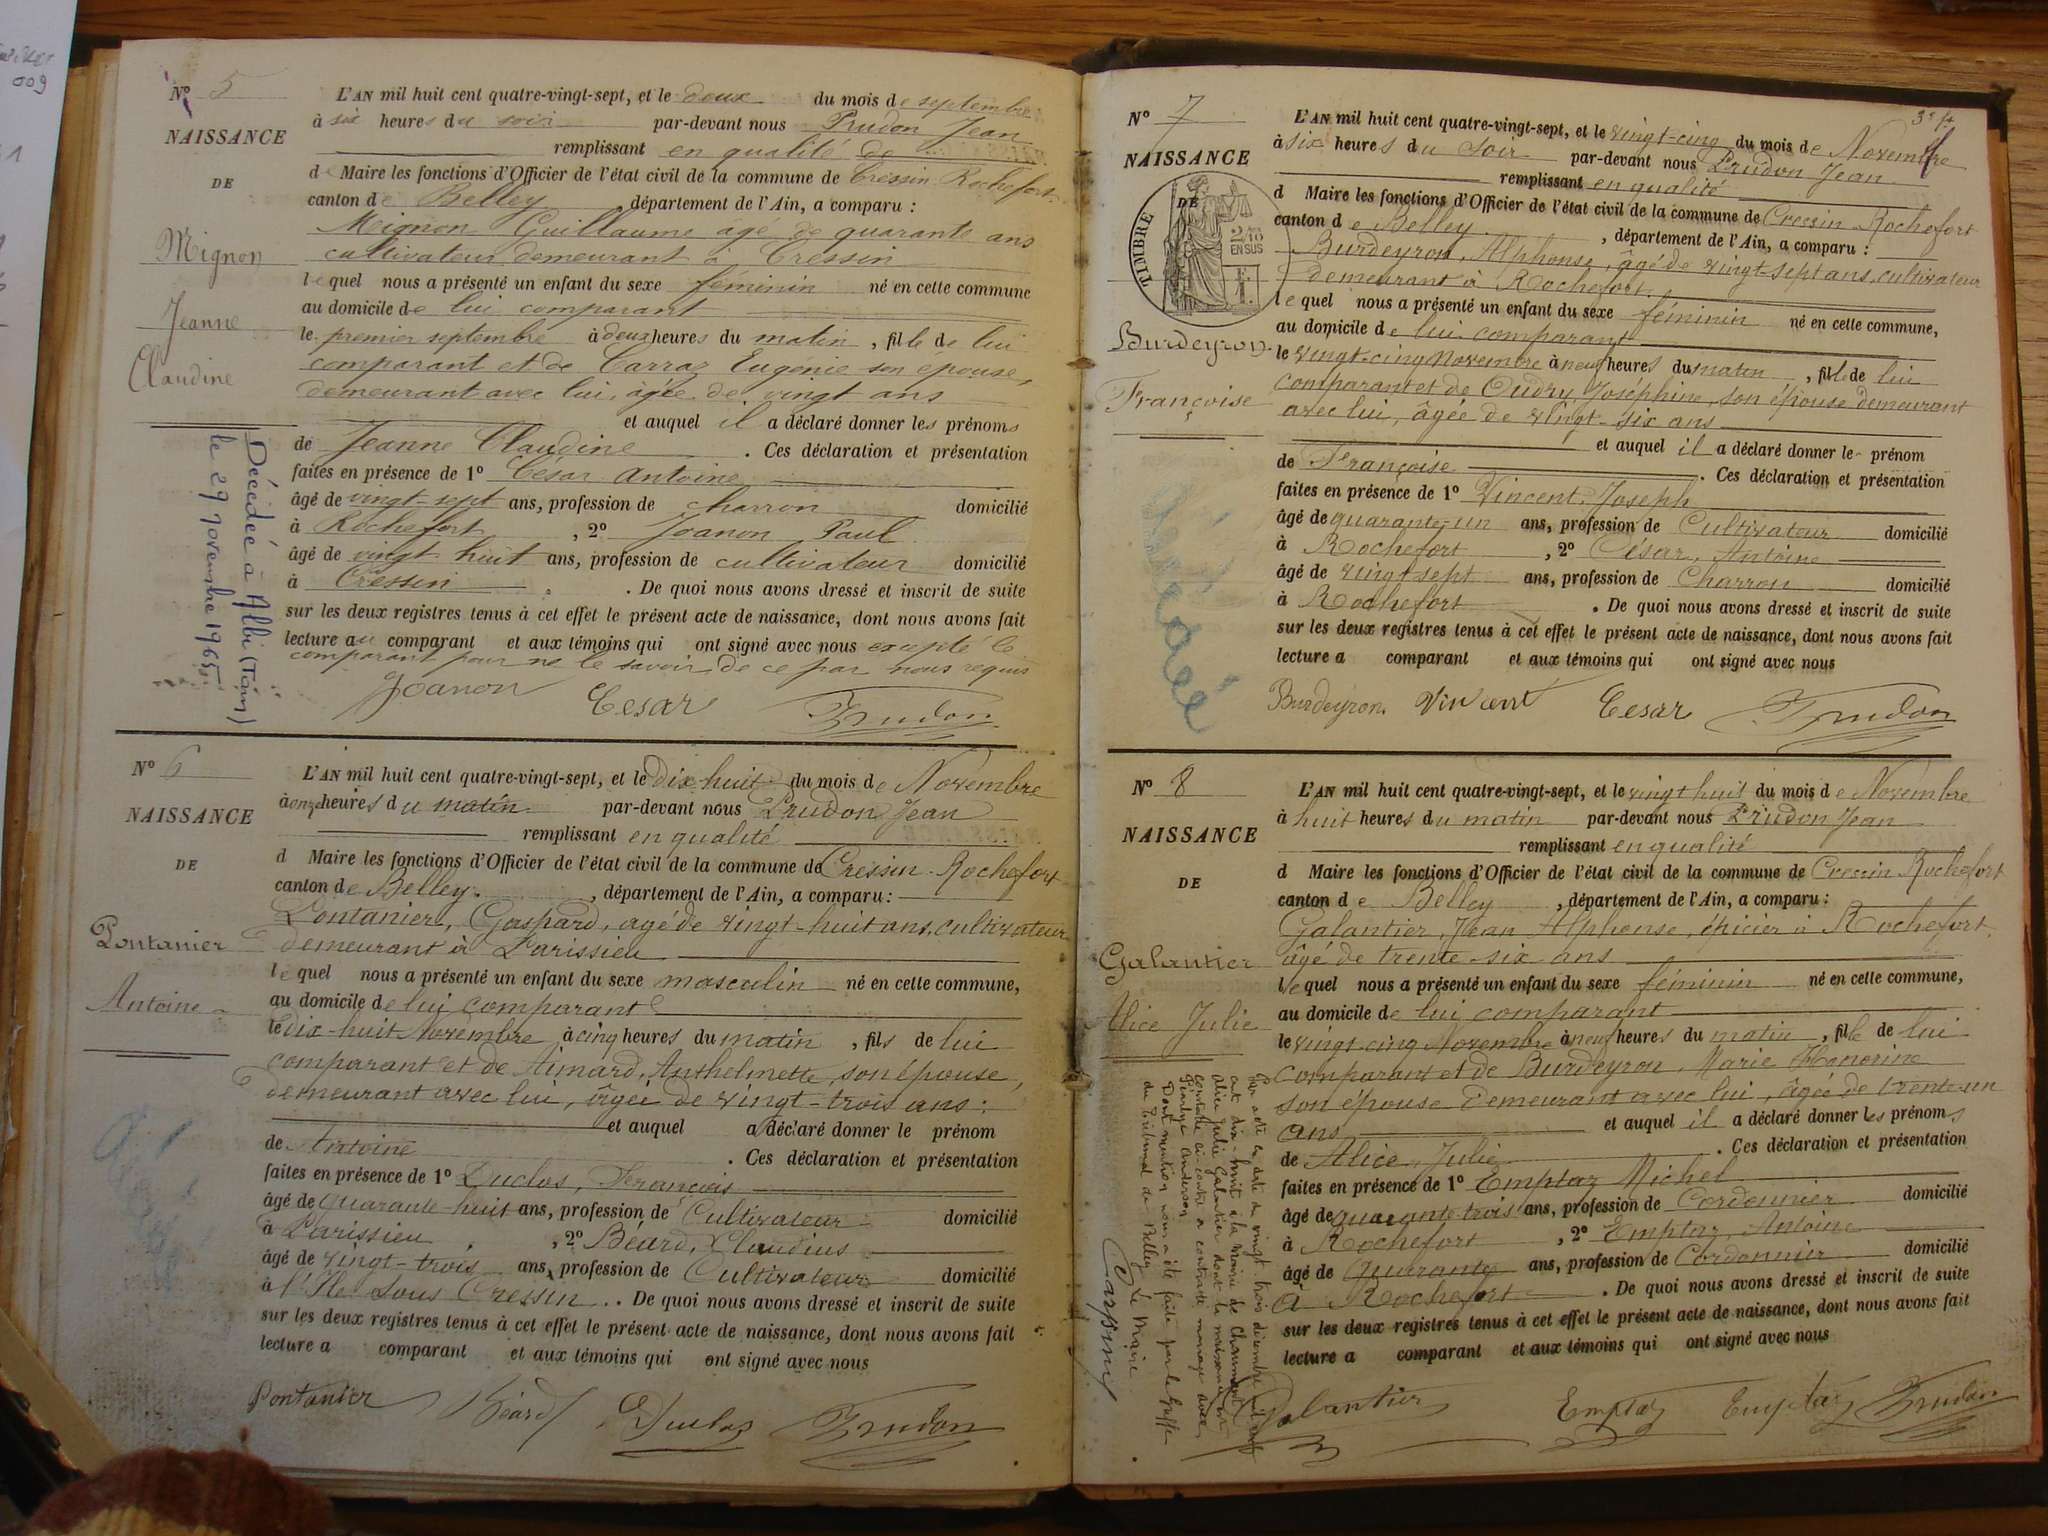 009
No 5
NAISSANCE
DE
Mignon
Jeanne
Claudine
Décédée à Albi (Tarn)
le 29 novembre 1965
L'AN mil huit cent quatre-vingt-sept, et le deux du mois de septembre
à six heures du soir par-devant nous Prudon Jean
remplissant en qualité de
d Maire les fonctions d'Officier de l'état civil de la commune de Cressin Rochefort
canton de Belley, département de l'Ain, a comparu :
Meignon Guillaume âgé de quarante ans
cultivateur demeurant à Cressin
lequel nous a présenté un enfant du sexe féminin né en cette commune
au domicile de lui comparant
le premier septembre à deux heures du matin, fille de lui
comparant et de Carraz Eugénie son épouse,
demeurant avec lui, âgée de vingt ans
et auquel il a déclaré donner les prénoms
de Jeanne Claudine. Ces déclaration et présentation
faites en présence de 1º César Antoine
âgé de vingt-sept ans, profession de charron domicilié
à Rochefort, 2º Joanon Paul
âgé de vingt huit ans, profession de cultivateur domicilié
à Cressin. De quoi nous avons dressé et inscrit de suite
sur les deux registres tenus à cet effet le présent acte de naissance, dont nous avons fait
lecture au comparant et aux témoins qui ont signé avec nous excepté le
comparant pour ne le savoir de ce par nous requis
Joanon Cesar Prudon
No 6
NAISSANCE
DE
Pontanier
Antoine
L'AN mil huit cent quatre-vingt-sept, et le dix-huit du mois de Novembre
à onze heures du matin par-devant nous Prudon Jean
remplissant en qualité
d Maire les fonctions d'Officier de l'état civil de la commune de Cressin-Rochefort
canton de Belley, département de l'Ain, a comparu :
Pontanier, Gaspard, agé de vingt-huit ans, cultivateur
demeurant à Parissieu
lequel nous a présenté un enfant du sexe masculin né en cette commune,
au domicile de lui comparant
le dix-huit Novembre à cinq heures du matin, fils de lui
comparant et de Aimard, Anthelmette, son épouse,
demeurant avec lui, âgée de vingt-trois ans :
et auquel a déclaré donner le prénom
de Antoine. Ces déclaration et présentation
faites en présence de 1º Duclos, François
âgé de quarante-huit ans, profession de Cultivateur domicilié
à Parissieu, 2º Béard, Claudius
âgé de vingt-trois ans, profession de Cultivateur domicilié
à l'Ile sous Cressin. De quoi nous avons dressé et inscrit de suite
sur les deux registres tenus à cet effet le présent acte de naissance, dont nous avons fait
lecture a comparant et aux témoins qui ont signé avec nous
Pontanier Béard Duclos Prudon
No 7
NAISSANCE
DE
TIMBRE
2/10
EN SUS
Burdeyron
Françoise
décédée
L'AN mil huit cent quatre-vingt-sept, et le vingt-cinq du mois de Novembre
à six heures du soir par-devant nous Prudon Jean
remplissant en qualité
d Maire les fonctions d'Officier de l'état civil de la commune de Cressin Rochefort
canton de Belley, département de l'Ain, a comparu :
Burdeyron, Alphonse, âgé de vingt-sept ans, cultivateur
demeurant à Rochefort.
lequel nous a présenté un enfant du sexe féminin né en cette commune,
au domicile de lui comparant
le vingt-cinq Novembre à neuf heures du matin, fille de lui
comparant et de Oudry, Joséphine, son épouse demeurant
avec lui, âgée de vingt-six ans
et auquel il a déclaré donner le prénom
de Françoise. Ces déclaration et présentation
faites en présence de 1º Vincent, Joseph
âgé de quarante-un ans, profession de Cultivateur domicilié
à Rochefort, 2º César, Antoine
âgé de vingt-sept ans, profession de Charron domicilié
à Rochefort. De quoi nous avons dressé et inscrit de suite
sur les deux registres tenus à cet effet le présent acte de naissance, dont nous avons fait
lecture a comparant et aux témoins qui ont signé avec nous
Burdeyron Vincent Cesar Prudon
No 8
NAISSANCE
DE
Galantier
Alice Julie
Par acte en date du vingt trois décembre mil neuf
cent dix-huit à la Mairie de Chaumont
Alice Julie Galantier dont la naissance est
constatée ci-contre a contracté mariage avec
Anderson
Dont mention nous a été faite par le Greffe
du Tribunal de Belley
Le Maire
L'AN mil huit cent quatre-vingt-sept, et le vingt huit du mois de Novembre
à huit heures du matin par-devant nous Prudon Jean
remplissant en qualité
d Maire les fonctions d'Officier de l'état civil de la commune de Cressin Rochefort
canton de Belley, département de l'Ain, a comparu :
Galantier, Jean Alphonse, épicier à Rochefort,
âgé de trente-six ans
lequel nous a présenté un enfant du sexe féminin né en cette commune,
au domicile de lui comparant
le vingt-cinq Novembre à neuf heures du matin, fille de lui
comparant et de Burdeyron, Marie Honorine
son épouse demeurant avec lui, âgée de trente-un
ans et auquel il a déclaré donner les prénoms
de Alice, Julie. Ces déclaration et présentation
faites en présence de 1º Emptaz Michel
âgé de quarante-trois ans, profession de Cordonnier domicilié
à Rochefort, 2º Emptaz, Antoine
âgé de Quarante ans, profession de Cordonnier domicilié
à Rochefort. De quoi nous avons dressé et inscrit de suite
sur les deux registres tenus à cet effet le présent acte de naissance, dont nous avons fait
lecture a comparant et aux témoins qui ont signé avec nous
Galantier Emptaz Emptaz Prudon